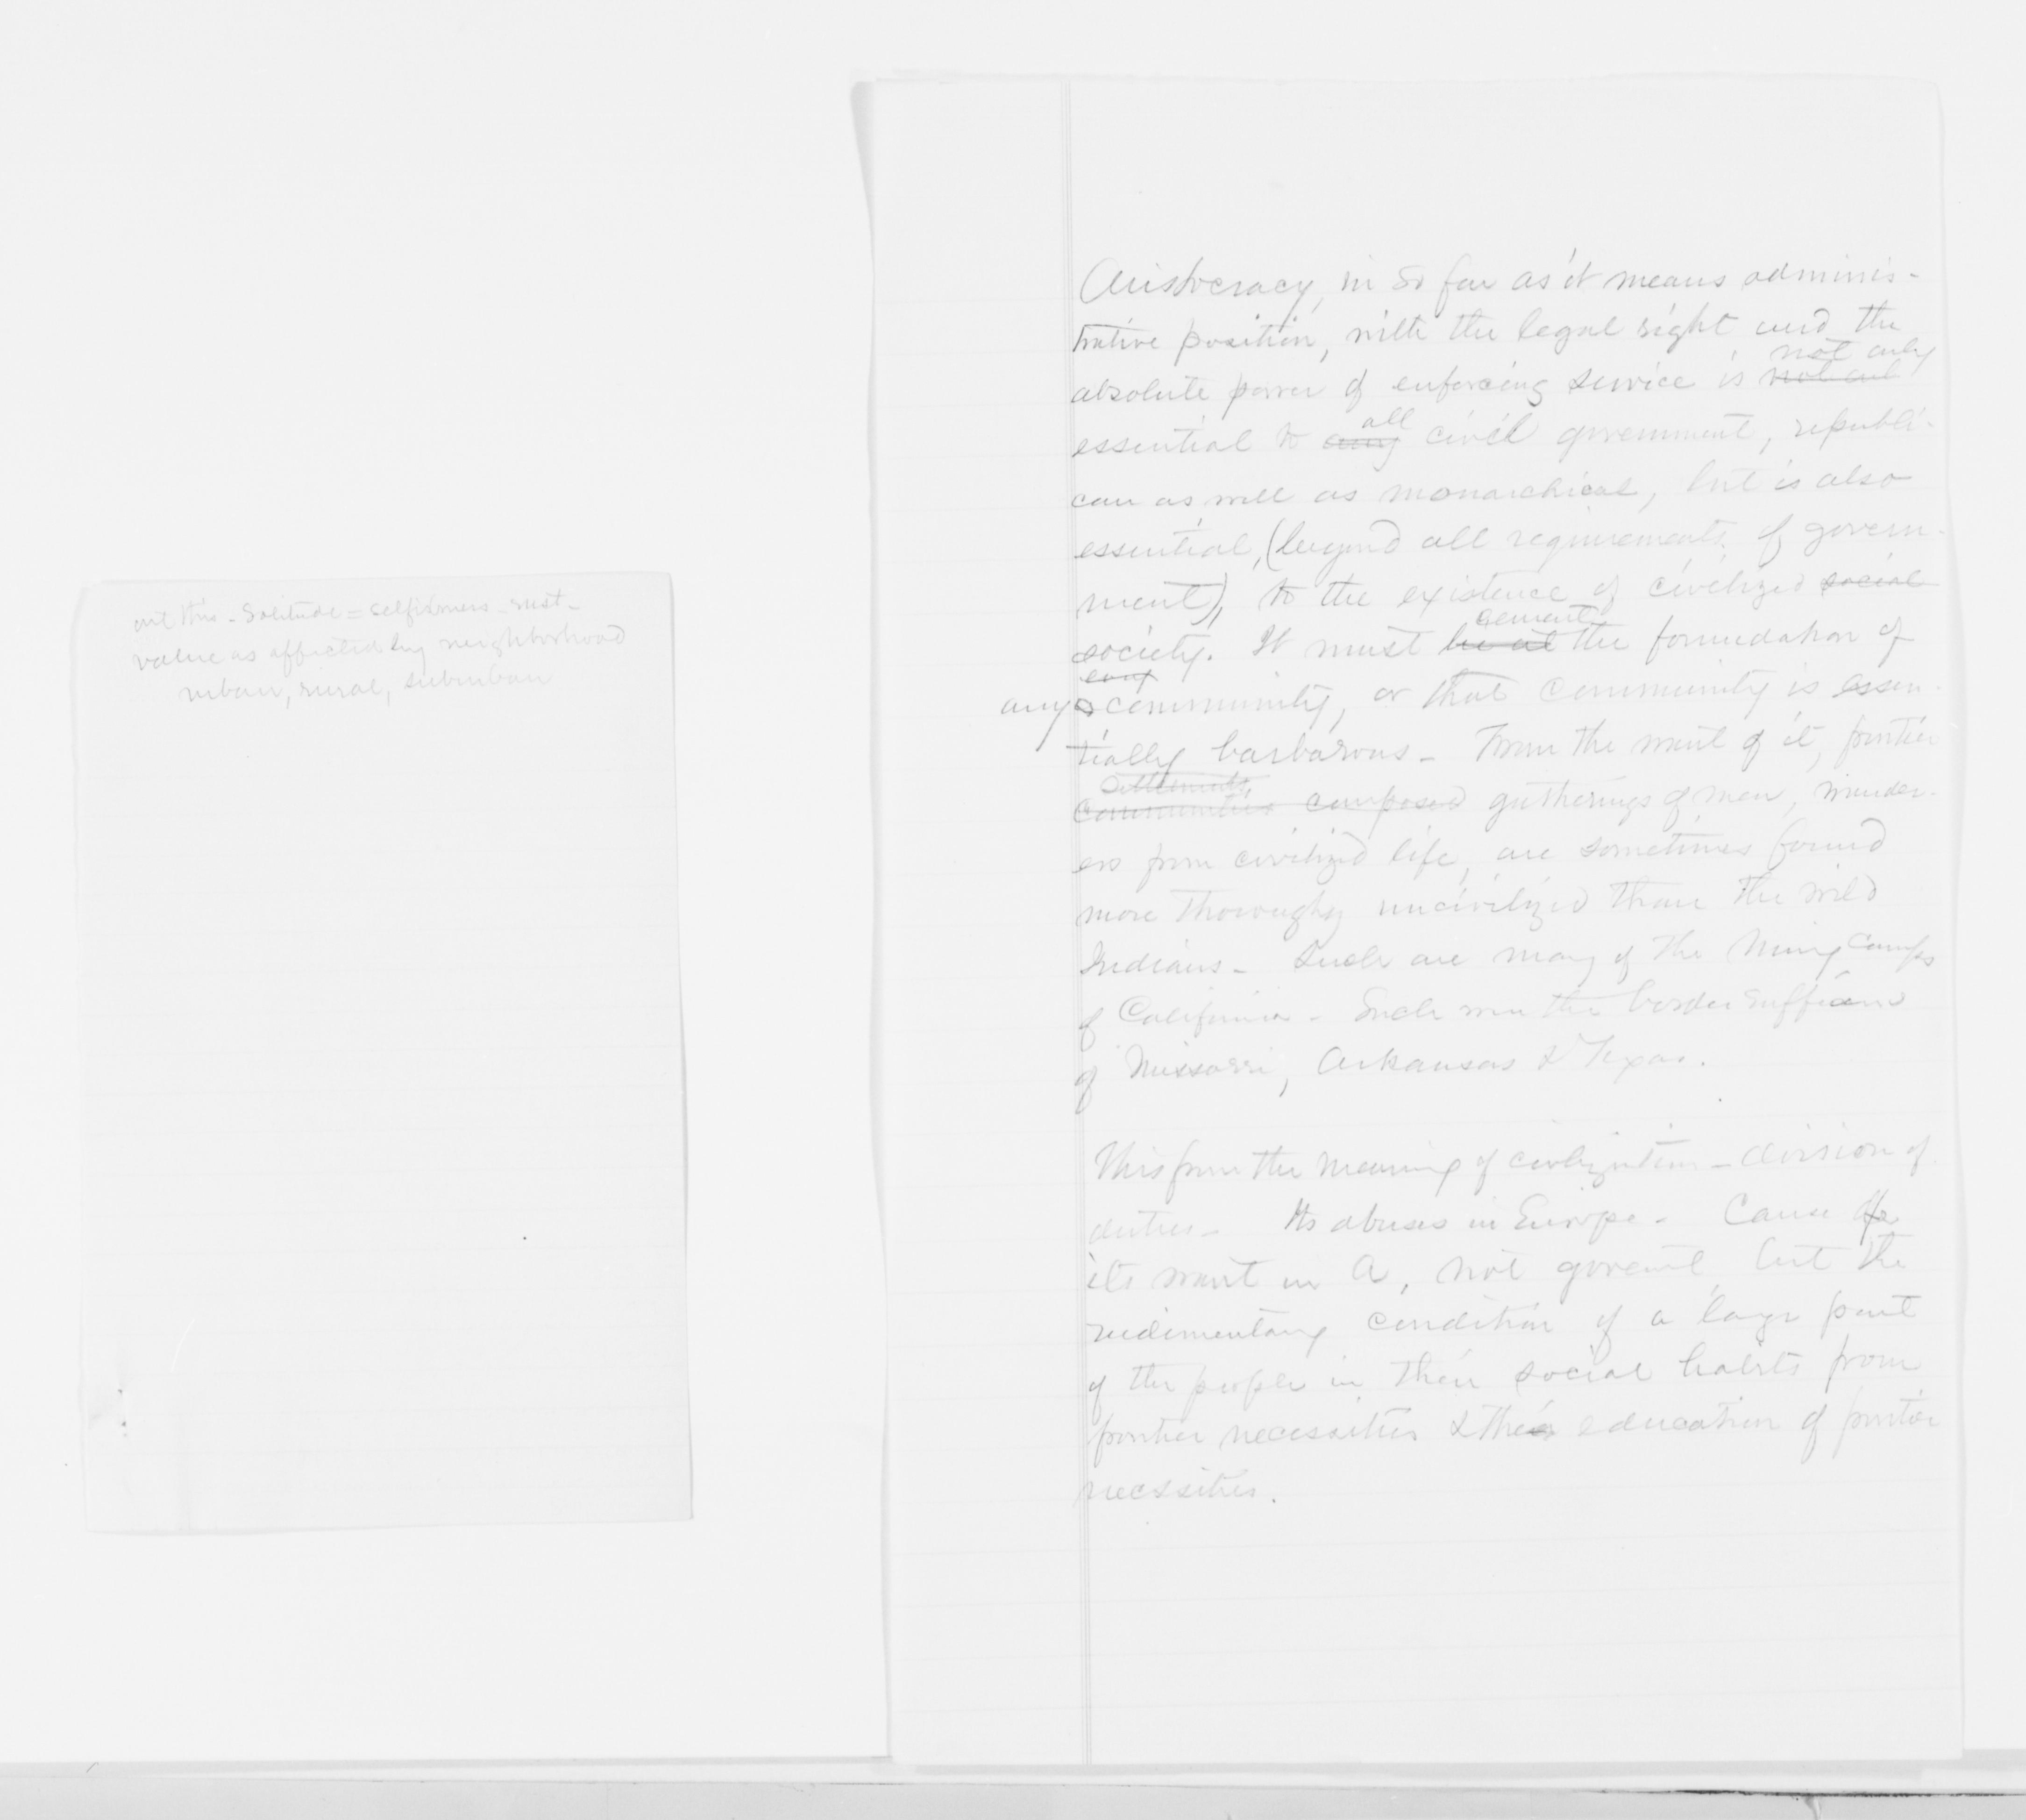 out this - Solitude = selfishness - rust -
value as affected by neighborhood
urban, rural, suburban
Aristocracy, in so far as it means adminis-
trative position, with the legal right and the
not only
absolute power of enforcing service is not onl
all
essential to any civil government, republi-
can as well as monarchical, but is also
essential, (beyond all requirements of govern-
ment), to the existence of civilized social
cement
society. It must be at the foundation of
any
any a community, or that community is essen-
tially barbarous - From the want of it, frontier
Settlements
Communities composed gatherings of men, wander-
ers from civilized life, are sometimes found
more thoroughly uncivilized than the wild
Indians - Such are many of the Mining Camps
of California - Such were the border ruffians
of Missorri, Arkansas & Texas.
This from the meaning of civilization - division of
duties - Its abuses in Europe - Cause of
its want in A, not govemt, but the
rudimentary condition of a large part
of the people in their social habits from
frontier necessities & their education of frontier
necessities.